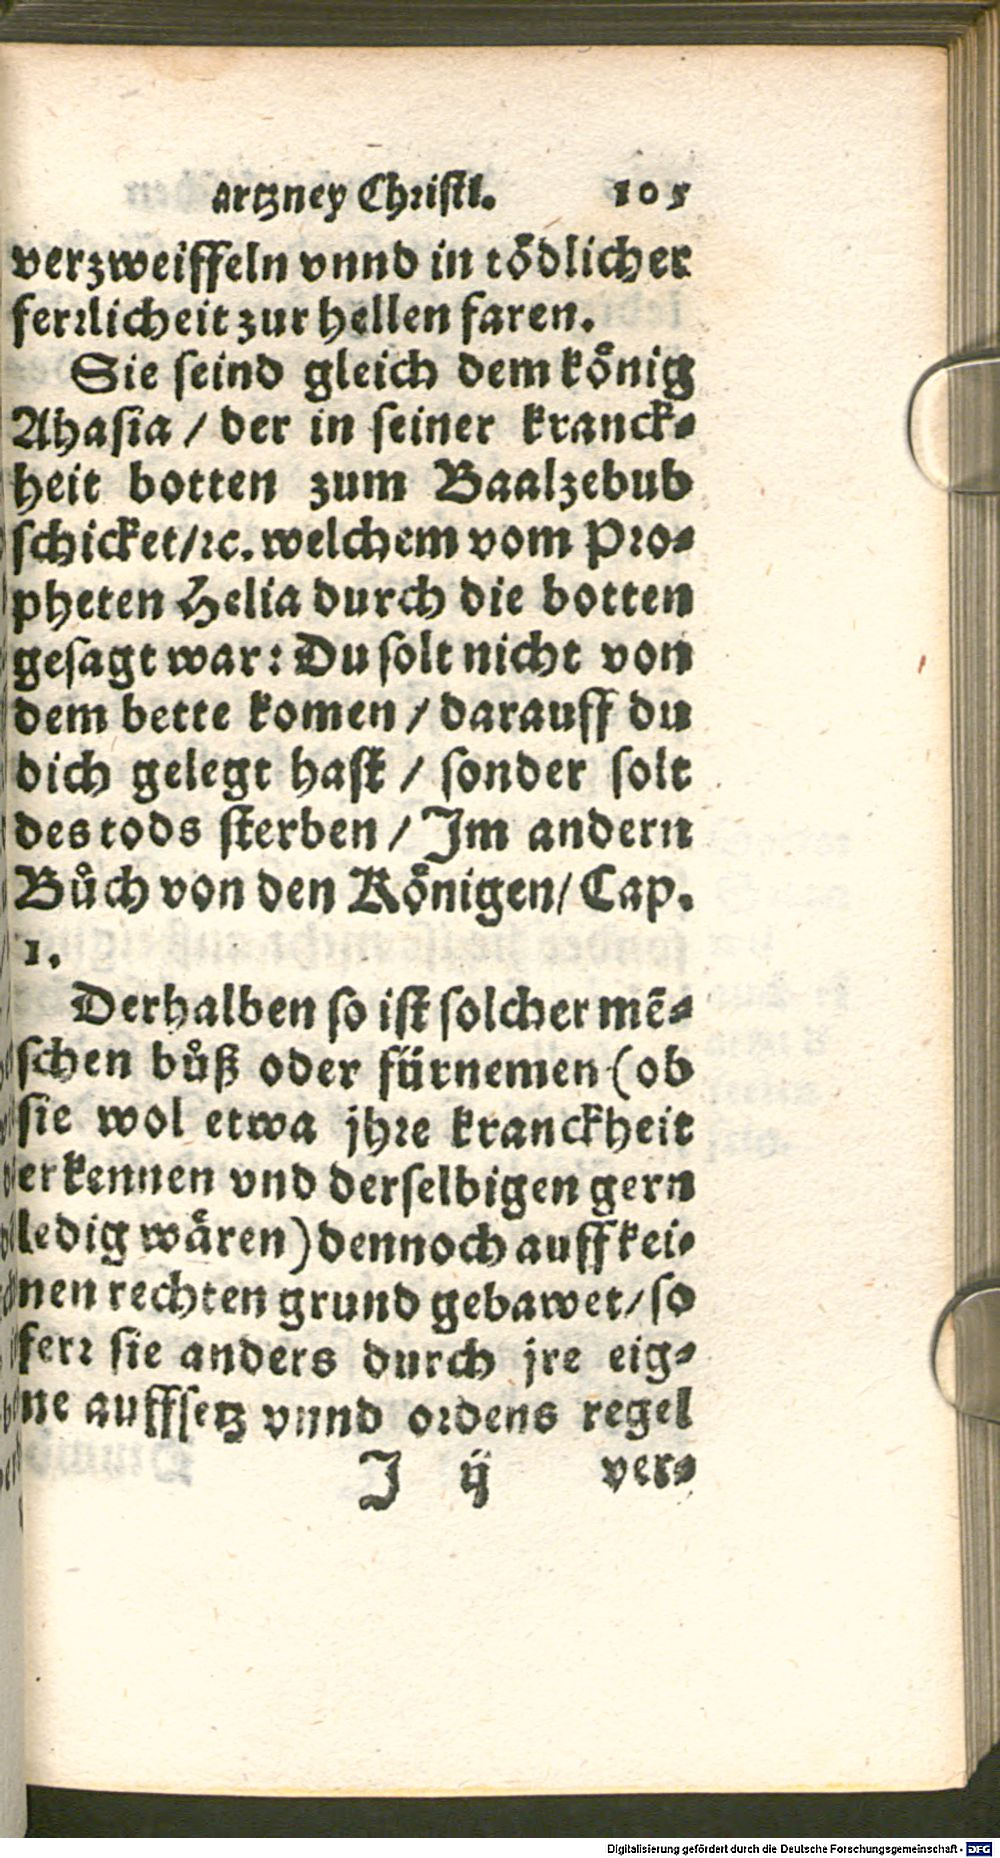 artzney Christl. 105
verzweiffeln vnnd in tödlicher
ferrlicheit zur hellen faren.
Sie seind gleich dem könig
Ahasia / der in seiner kranck-
heit botten zum Baalzebub
schicket/rc. welchem vom Pro-
pheten Helia durch die botten
gesagt war: Du solt nicht von
dem bette komen / darauff du
dich gelegt hast / sonder solt
des tods sterben / Im andern
Bůch von den Königen/ Cap.
1.
Derhalben so ist solcher mē-
schen bůß oder fürnemen (ob
sie wol etwa jhre kranckheit
erkennen vnd derselbigen gern
ledig wären) dennoch auff kei-
nen rechten grund gebawet/ so
ferr sie anders durch jre eig-
ne auffsetz vnnd ordens regel
J ij ver-
Digitalisierung gefördert durch die Deutsche Forschungsgemeinschaft - DFG